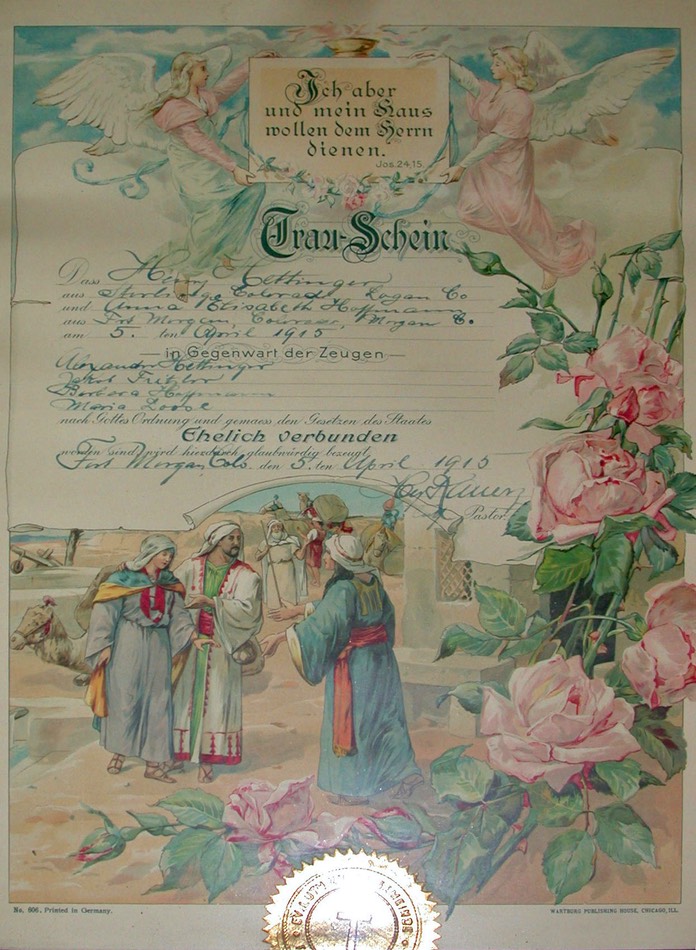 Ich aber
und mein Haus
wollen dem Herrn
dienen.
Jos. 24,15.
Trau-Schein
Dass Henry Hettinger
aus Colorado Logan Co
und Anna Elisabeth Hoffmann
aus Fort Morgan, Morgan Co.
am 5. ten April 1915
in Gegenwart der Zeugen
Alexander Hettinger
Jakob Fritzler
Barbara Hoffmann
Maria Loose
nach Gottes Ordnung und gemaess den Gesetzen des Staates
Ehelich verbunden
worden sind, wird hierdurch glaubwürdig bezeugt
Fort Morgan, Colo. den 5. ten April 1915
Pastor
No. 606. Printed in Germany.
WARTBURG PUBLISHING HOUSE, CHICAGO, ILL.